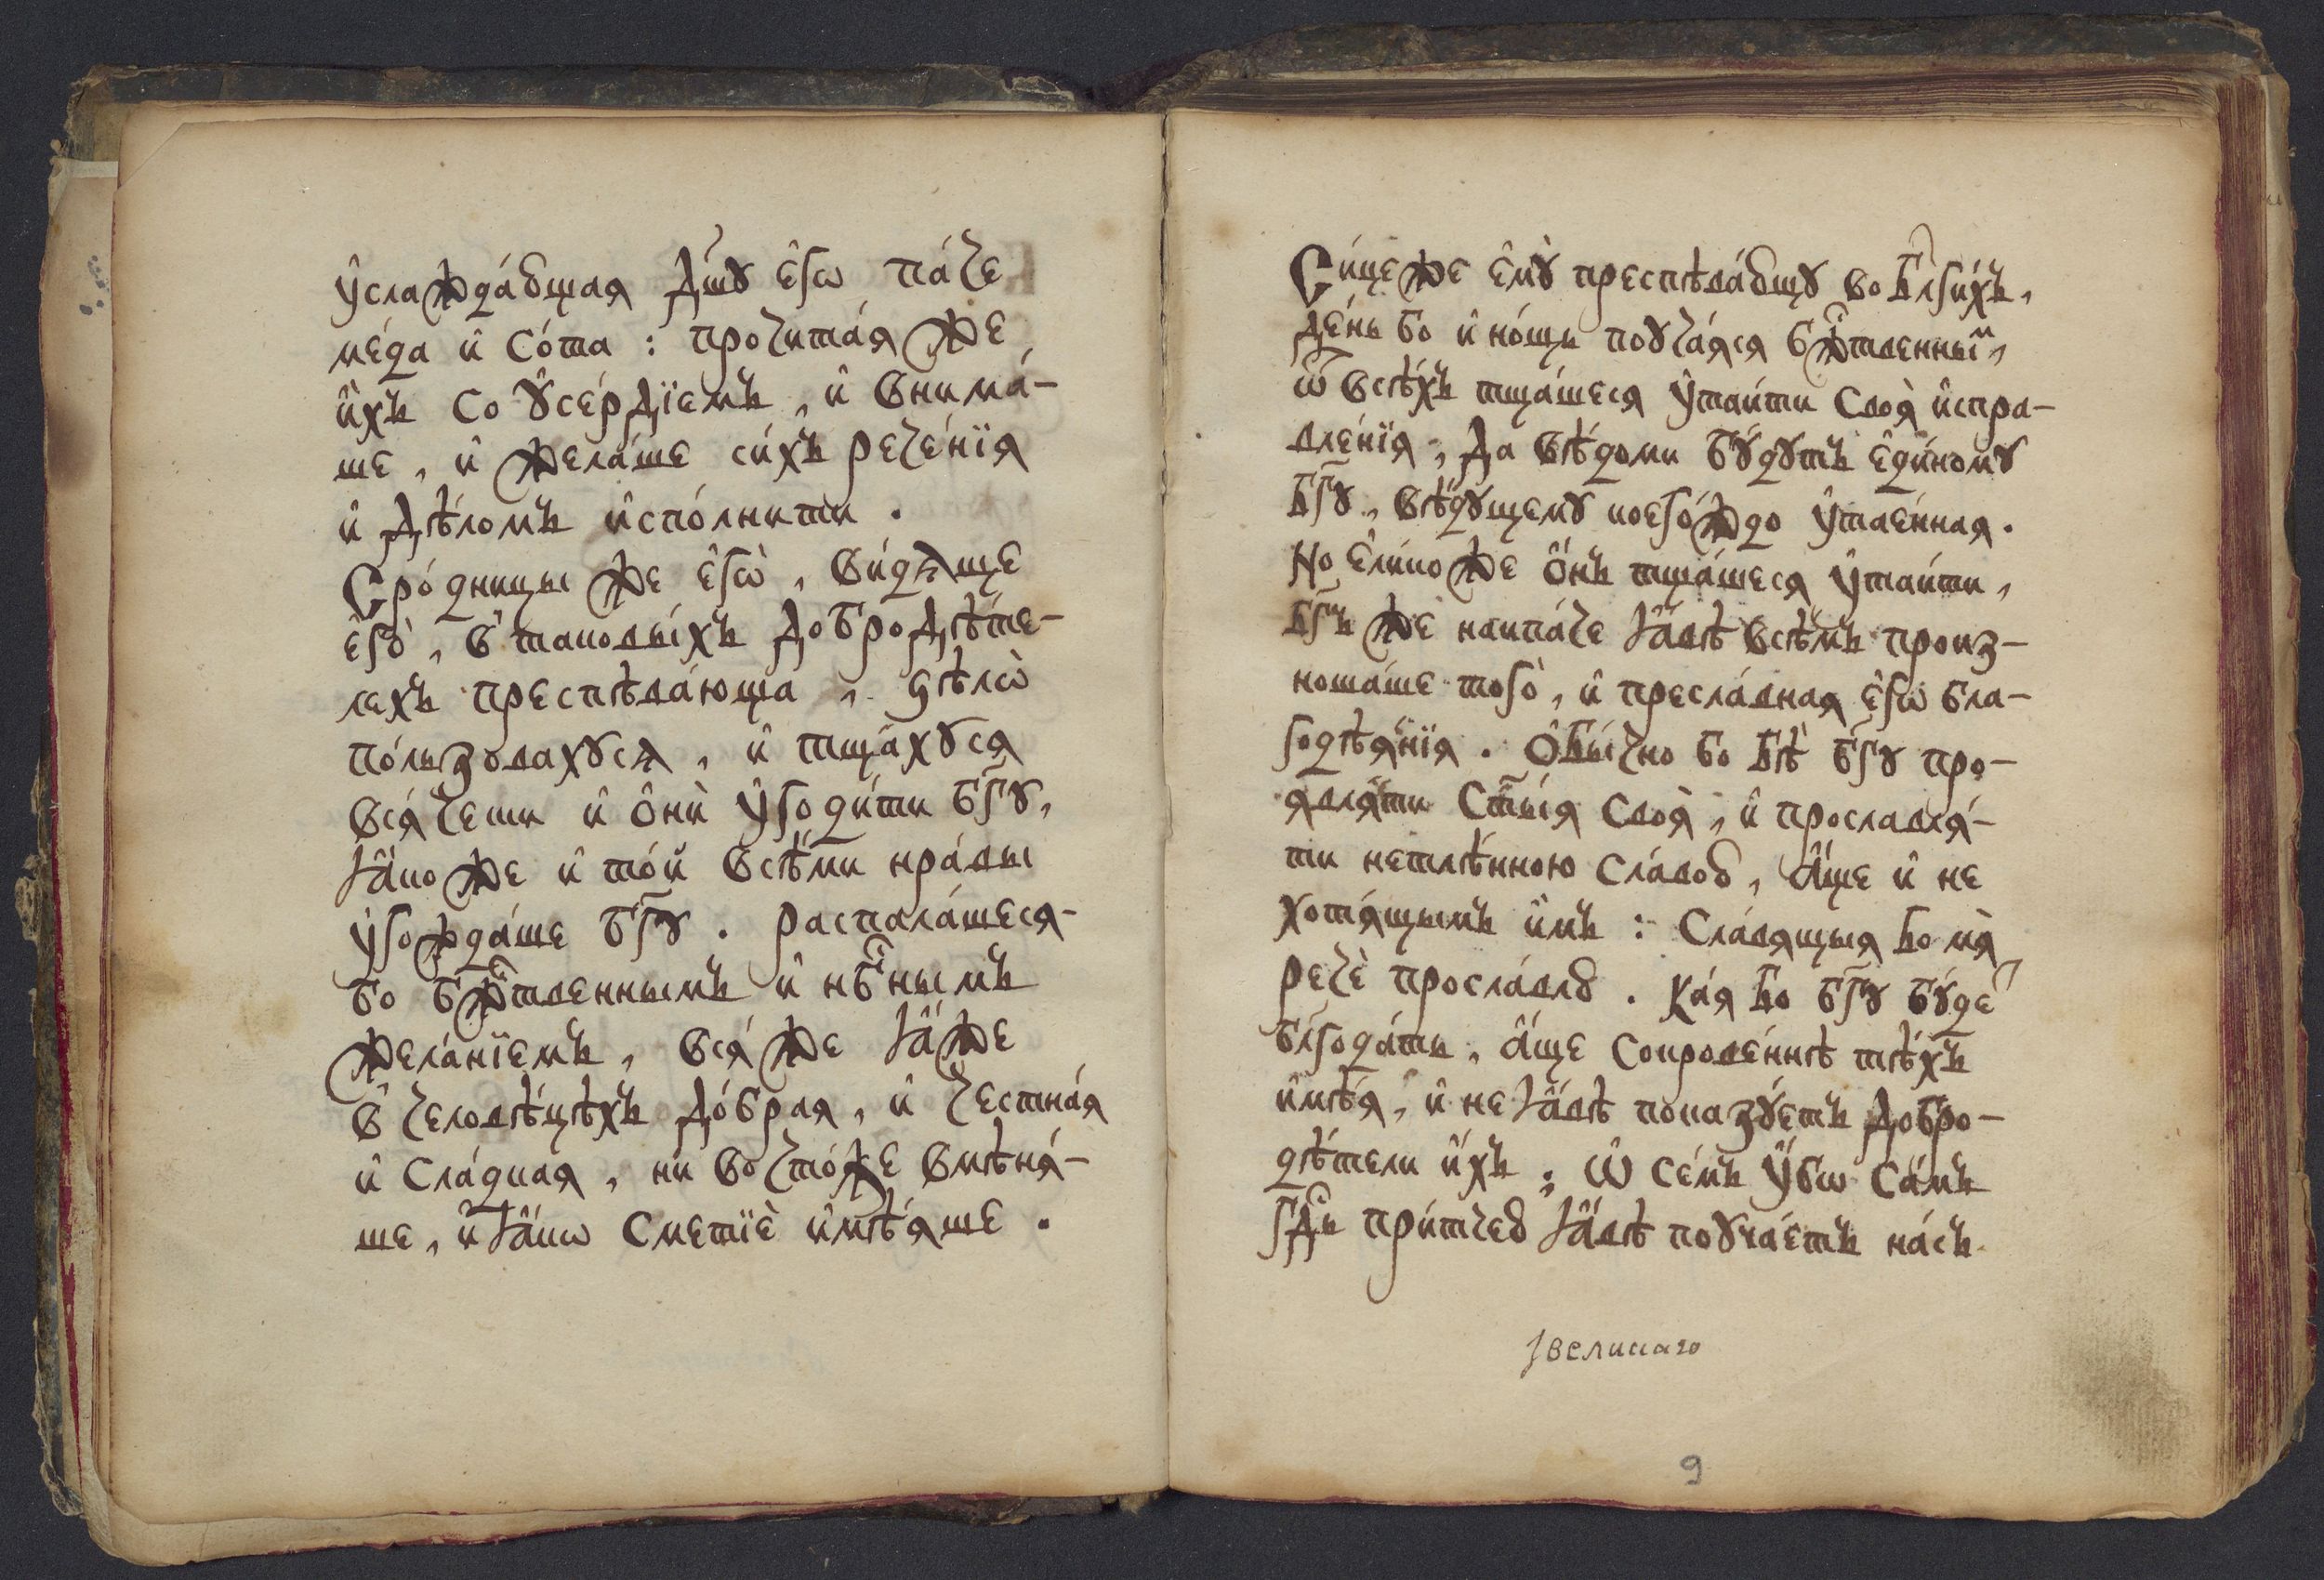 ᲂу҆слажда́ющая дш҃ꙋ є҆гѡ̀ па́че
ме́да и҆ со́та : прочита́я же
и҆́хъ со ᲂу҆се́рдїемъ , и҆ внима́-
ше , и҆ жела́ше си́хъ рече́нїя
и҆ дѣ́ломъ и҆спо́лнити .
Сро́дницы же є҆гѡ̀ , ви́дѧще
є҆го̀ , в̾ таковы́хъ добродѣ́те-
лехъ преспѣва́юща , ѕѣлѡ̀
по́льзовахꙋсѧ , и҆ тща́хꙋся
вся́чески и҆ ѻ҆нѝ ᲂу҆годи́ти бг҃ꙋ ,
ꙗ҆́коже и҆ то́й всѣ́ми нра́вы
ᲂу҆гожда́ше бг҃ꙋ . распала́шеся
бо бж҃твеннымъ и҆ нб҃нымъ
жела́нїемъ , вся́ же ꙗ҆̀же
в̾ человѣ́цѣхъ до́брая , и҆ честна́я
и҆ сла́дкая , ни во что́же вмѣня́-
ше , и҆ ꙗ҆́кѡ сметїѐ и҆мѣ́яше .
Си́це же є҆мꙋ̀ преспѣва́ющꙋ во бл҃ги́хъ ,
де́нь бо и҆ но́щь поꙋча́яся бж҃твенны́м ,
ѿ всѣ́хъ тща́шеся ᲂу҆таи́ти своѧ̀ и҆спра-
вле́нїя , да вѣ́доми бꙋ́дꙋтъ є҆ди́номꙋ
бг҃ꙋ , вѣ́дꙋщемꙋ коего́ждо ᲂу҆тае́нная .
Но є҆ли́ко же ѻ҆́нъ тща́шеся ᲂу҆таи́ти ,
бг҃ъ же наипа́че ꙗ҆́вѣ всѣ́мъ произ-
ноша́ше того̀ , и҆ пресла́вная є҆гѡ̀ бла-
годѣя́нїя . Ѻ҆бы́чно бо бѣ̀ бг҃ꙋ про-
явля́ти ст҃ы́я своя̀ , и҆ прославля́-
ти нетлѣ́нною сла́вою , а҆́ще и҆ не
хотя́щымъ и҆̀мъ : сла́вящыя бо мя̀
речѐ просла́влю . Ка́я бо бг҃ꙋ бꙋ́де
бл҃года́ть , а҆́ще сокрове́ннѣ тѣ́хъ
и҆мѣ́я , и҆ не ꙗ҆́вѣ показꙋ́етъ добро-
дѣ́тели и҆́хъ ; Ѡ҆ се́мъ ᲂу҆́бѡ са́мъ
гд҃ь при́тчею ꙗ҆́вѣ поꙋча́етъ на́съ
великаго
9